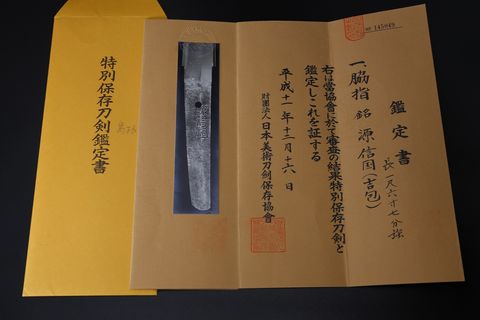 特別保存刀剣鑑定書
鑑定書
一、脇指 銘 源信国(吉包)
長一尺六寸七分強
右は當協會に於て審査の結果特別保存刀剣と
鑑定しこれを証する
平成十一年十二月十六日
財團法人 日本美術刀剣保存協會